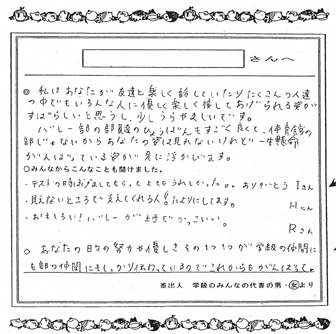 さんへ
◎ 私はあなたが友達と楽しく話していたり、たくさんの人達
の中でもいろんな人に優しく楽しく接してあげられる姿が
すばらしいと思うし、少しうらやましいです。
バレー部の部員のひょうばんもすごく良くて、体育館の
部じゃないからあなたの姿は見れないけれど一生懸命
がんばっている姿が目に浮かびます。
◎みんなからこんなことも聞きました。
・テストの時はげましてもらって、とてもうれしかった。ありがとう Iさん
・見えないところで支えてくれる人!たよりにしてます。 Hくん
・おもしろい!バレーが上手でかっこいい。 Rさん
◎ あなたの日々の努力や優しさその1つ1つが学級の仲間に
も部の仲間にもしっかり伝わっているのでこれからもがんばって。
差出人 学級のみんなの代表の男・女より